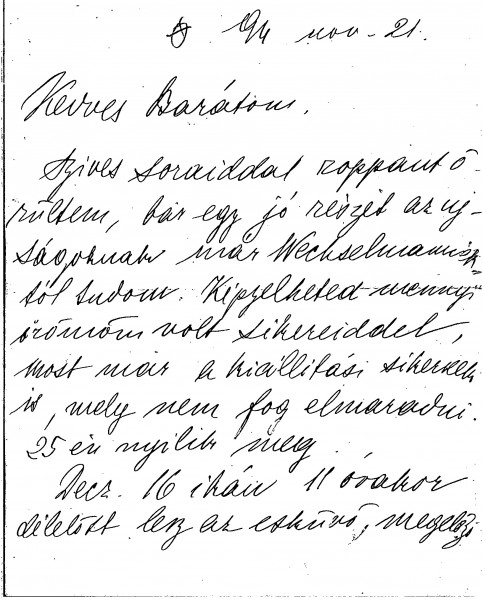 94 nov. 21.
Kedves Barátom.
Szives soraiddal roppant ö-
rültem, bár egy jó részét az uj-
ságoknak már Wechselmannék-
tól tudom. Képzelheted mennyi
örömöm volt sikereiddel,
most már a kiállitási sikernek
is, mely nem fog elmaradni.
25 én nyilik meg.
Decz. 16 ikán 11 órakor
délelőtt lesz az esküvő, megelőző